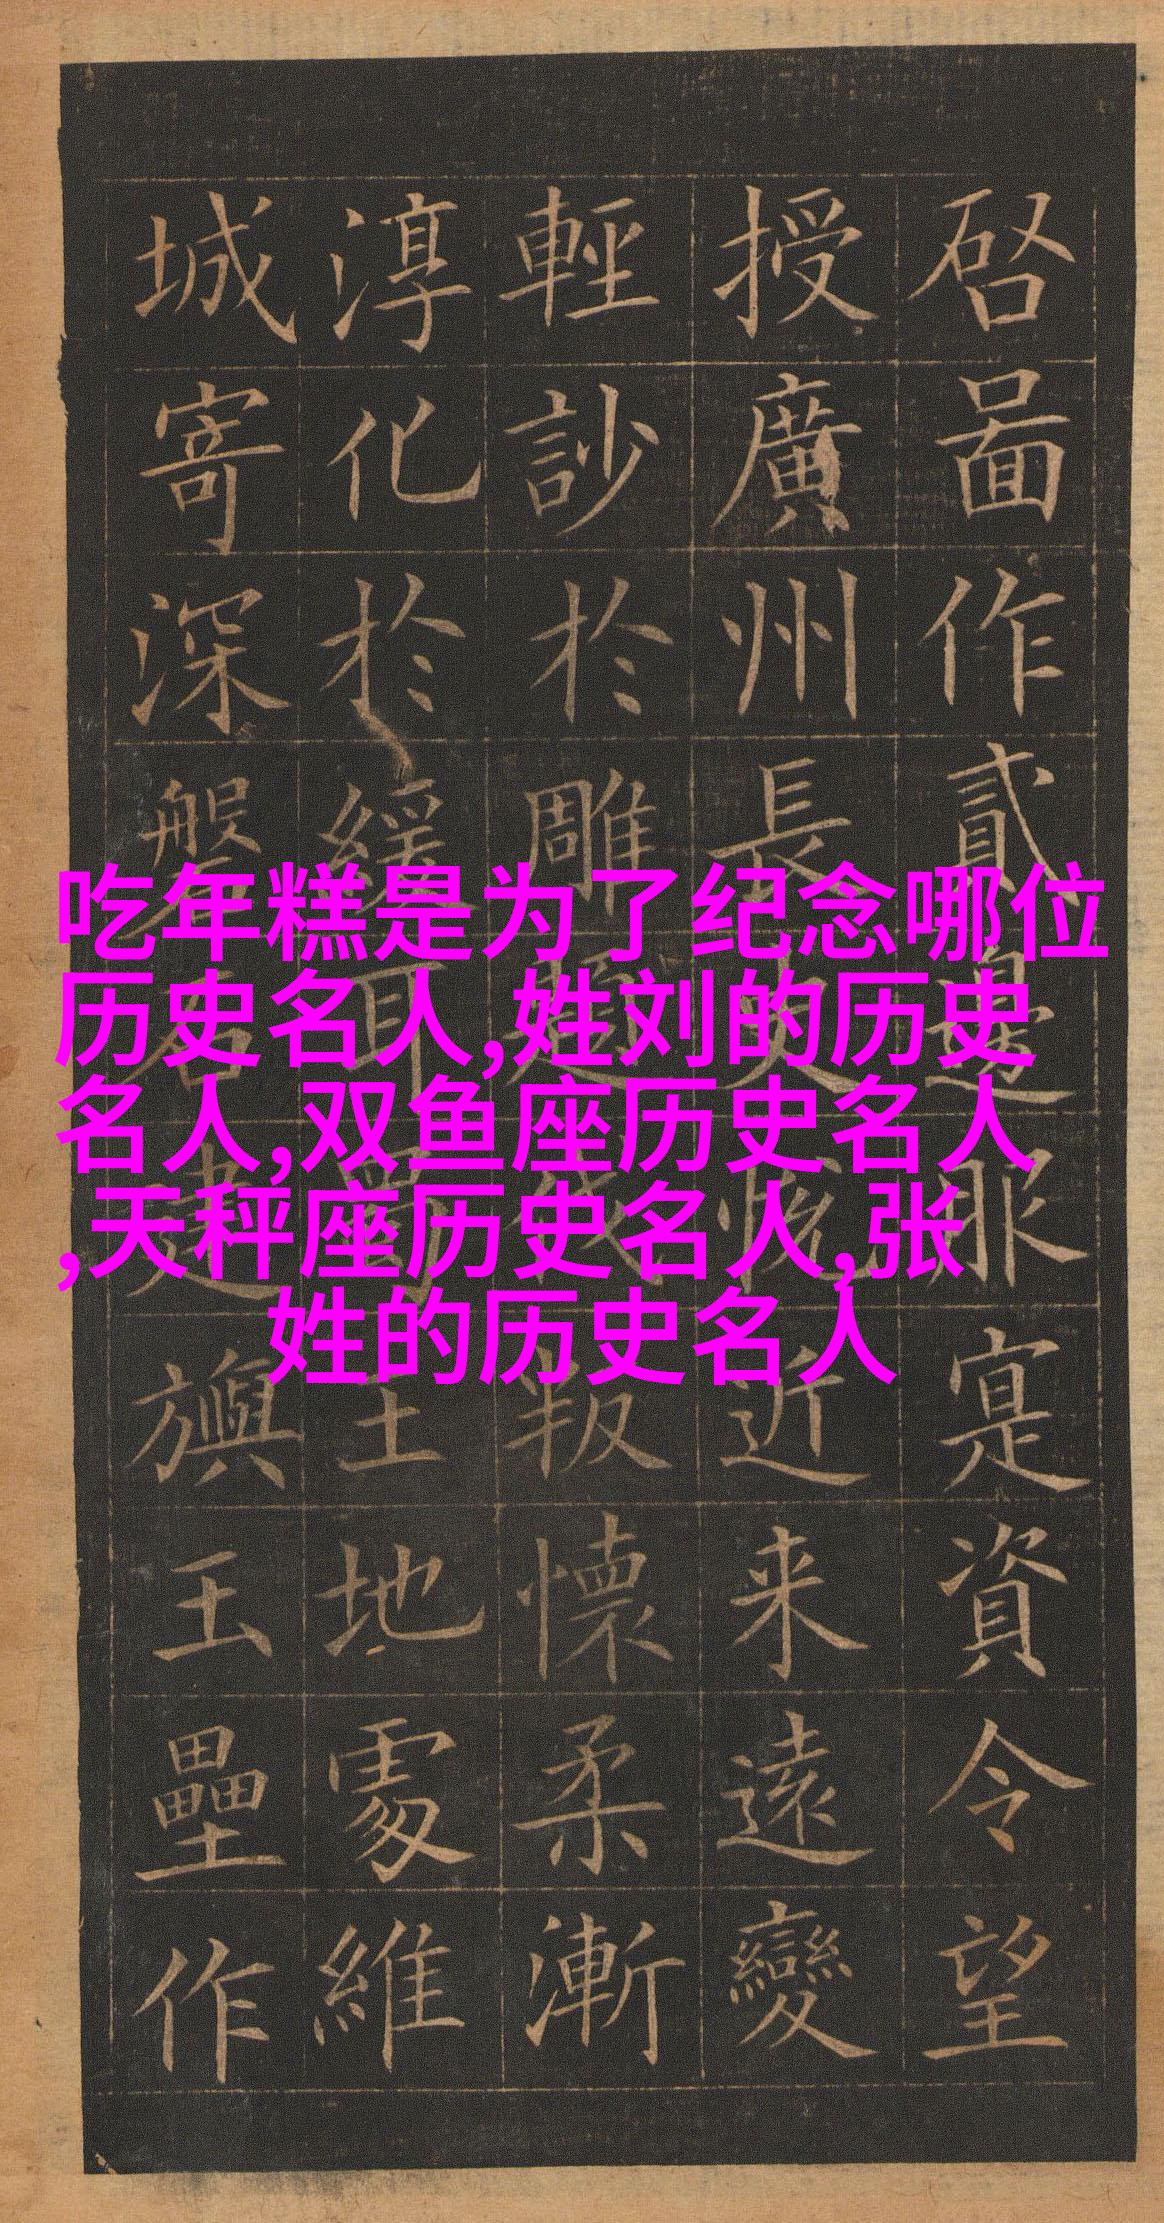 吃年糕是为了纪念哪位
历史名人,姓刘的历史
名人,双鱼座历史名人
,天秤座历史名人,张
姓的历史名人
啓啚作貳邊服寔資令望
授廣州長史悦近来遠變
輕訬於雕題伐叛懷柔漸
淳化於緩耳土地處維
城寄深磐石建旟玉壘作